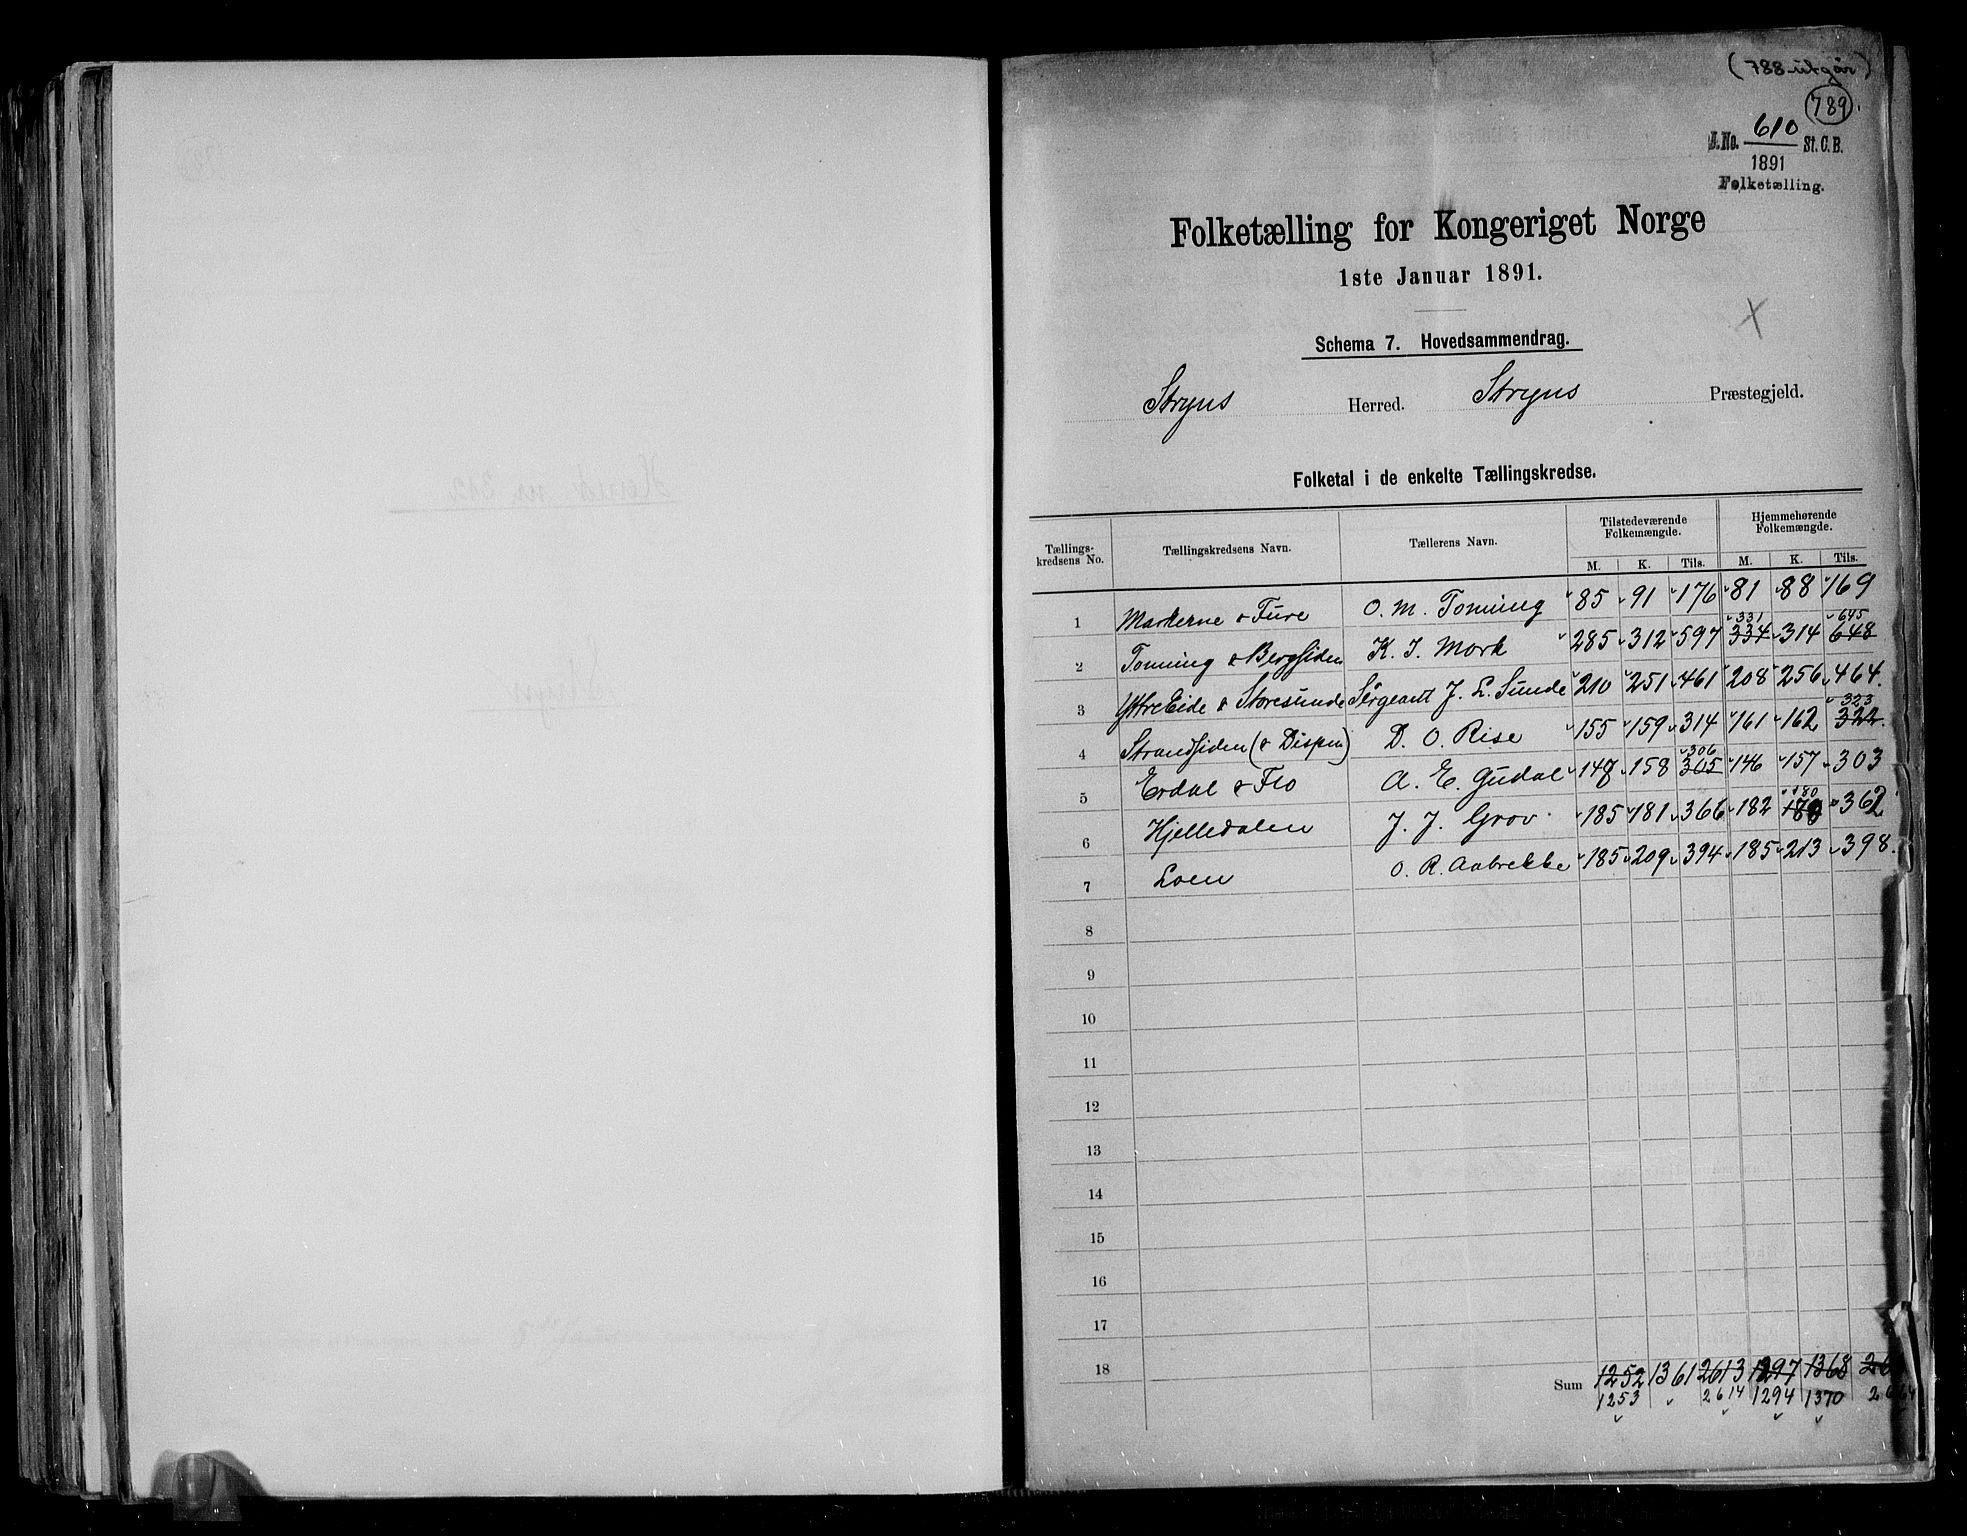 (788 utgår)
789
J. No. 610 St. C. B.
1891
Folketælling.
Folketælling for Kongeriget Norge
1ste Januar 1891.
Schema 7. Hovedsammendrag.
Stryns Herred. Stryns Præstegjeld.
Folketal i de enkelte Tællingskredse.
Tællings-kredsens No. Tællingskredsens Navn. Tællerens Navn. Tilstedeværende Folkemængde. Hjemmehørende Folkemængde.
M. K. Tils. M. K. Tils.
1 Markerne & Fure O. M. Tonning 85 91 176 81 88 169
331 645
2 Tonning & Bergsiden K. J. Mork 285 312 597 334 314 648
3 Ytre Eide & Storesunde Sergeant J. L. Sunde 210 251 461 208 256 464.
323
4 Strandsiden (& Dispen) D. O. Rise 155 159 314 161 162 322.
306
5 Erdal & Flo A. E. Gudal 148 158 305 146 157 303
180
6 Hjelledalen J. J. Grov 185 181 366 182 362
7 Loen O. R. Aabrekke 185 209 394 185 213 398.
8
9
10
11
12
13
14
15
16
17
18
Sum 1252 1361 2613 1297 1368
1253 2614 1294 1370 2664